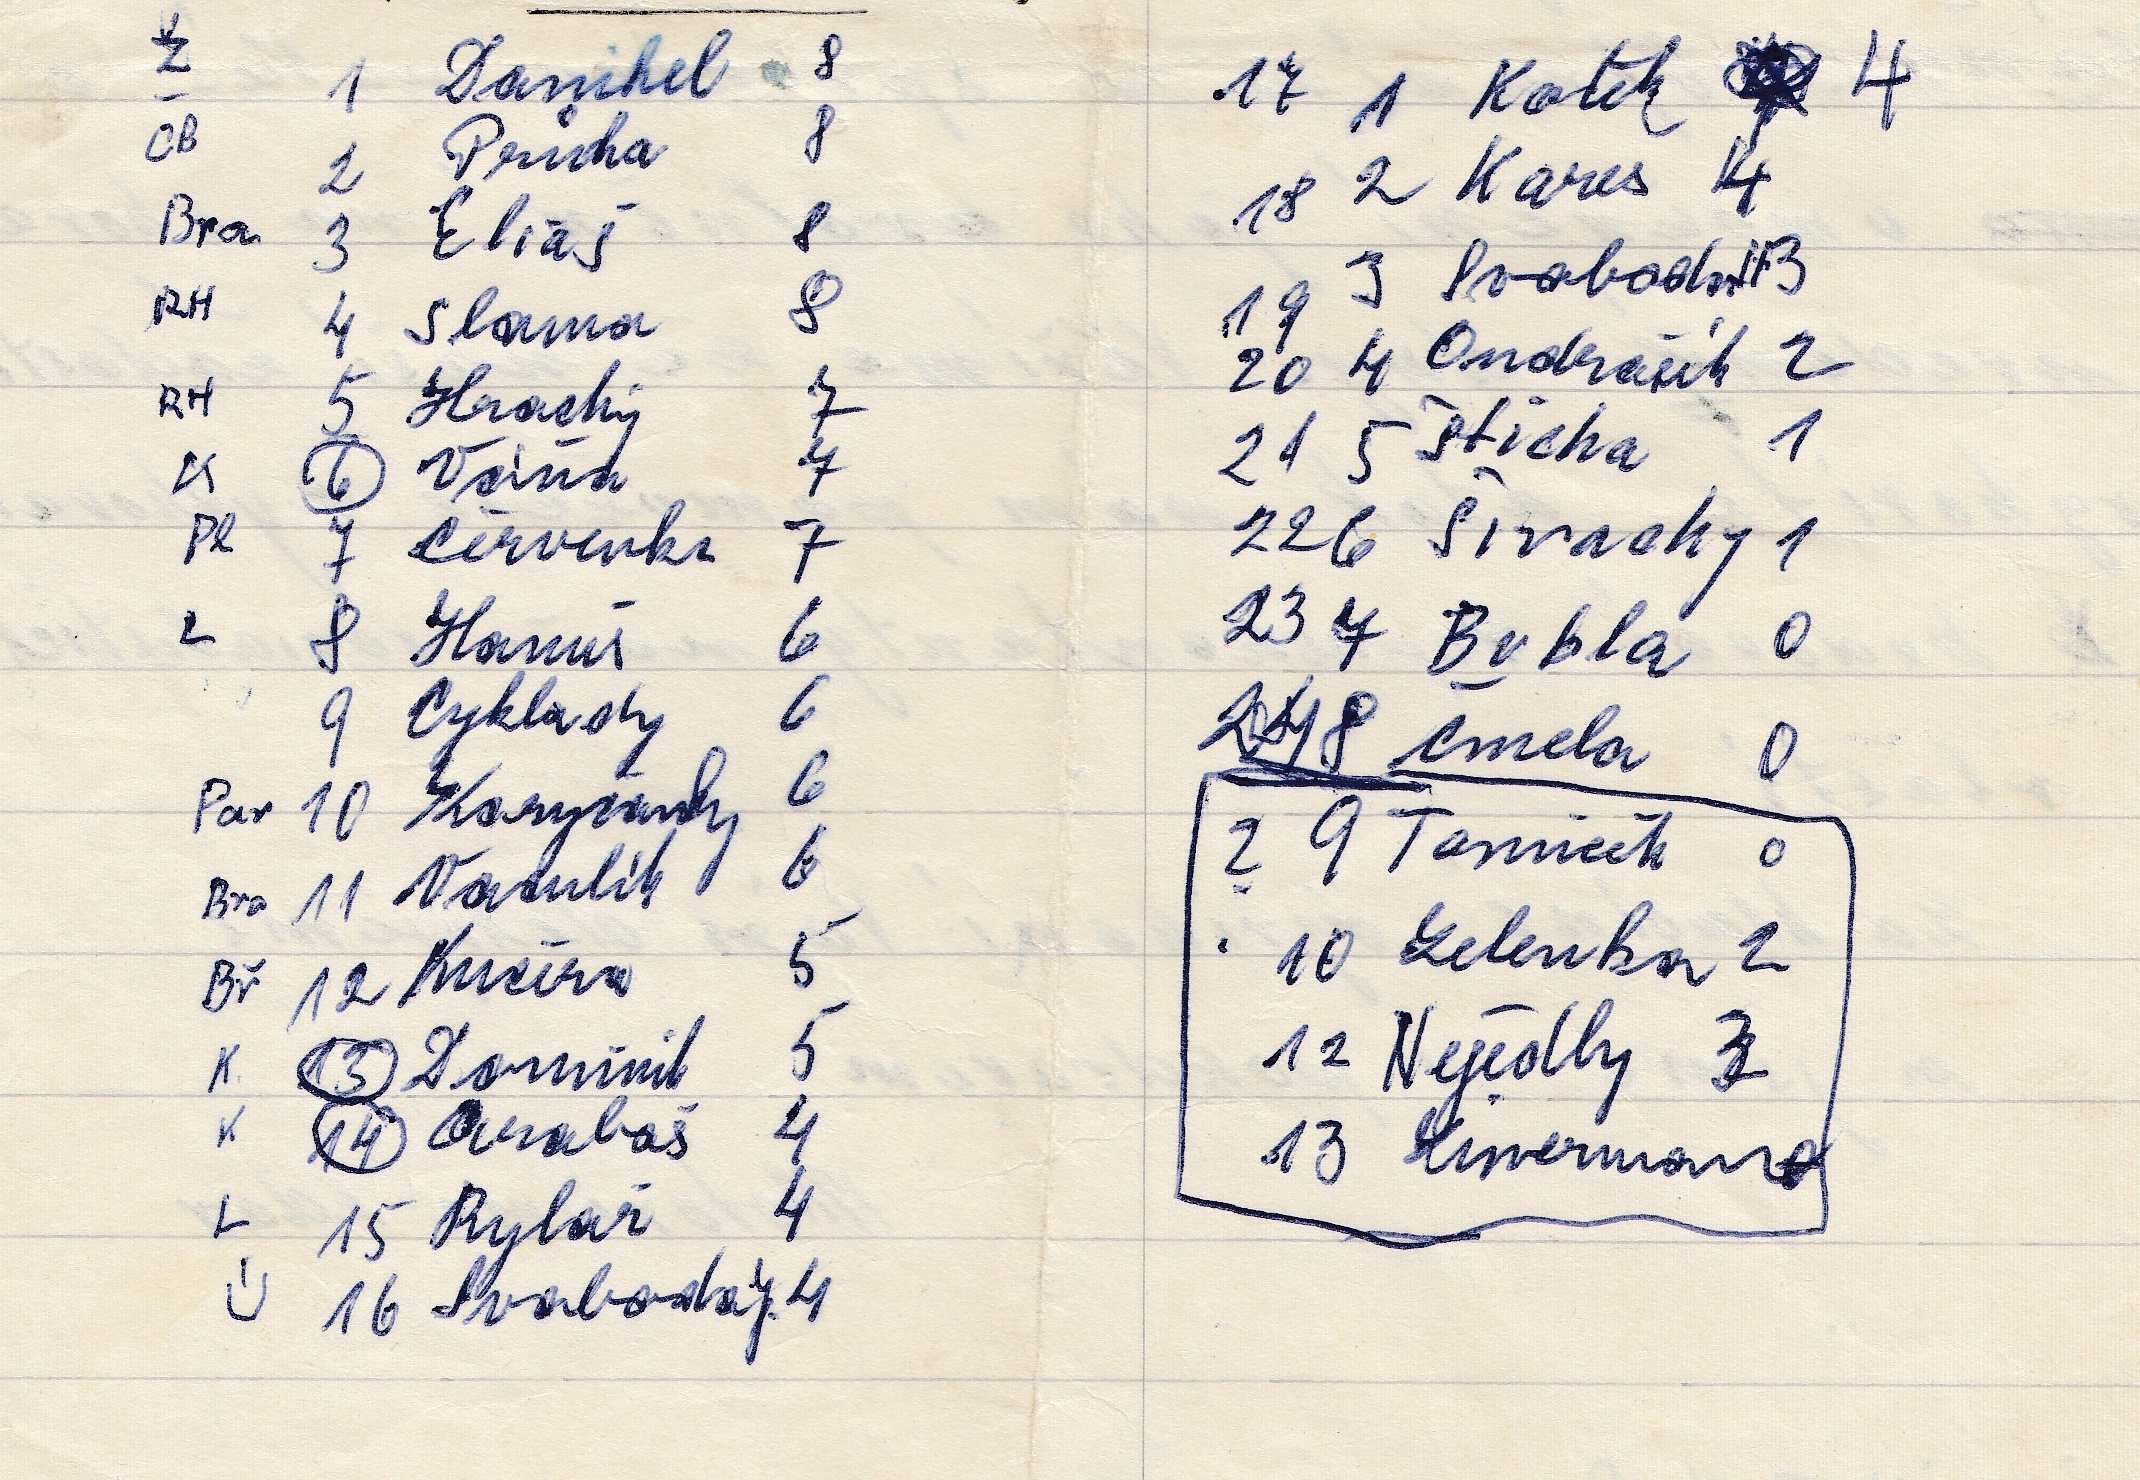 Ž 1 Danihel 8
ČB 2 Průcha 8
Bra 3 Eliáš 8
RH 4 Slama 8
RH 5 Hracky 7
K 6 Váňa 7
Pl 7 Červenka 7
L 8 Hanuš 6
9 Cyklady 6
Par 10 Koryčandy 6
Bra 11 Vaculík 6
Bř 12 Kučera 5
K 13 Dominik 5
K 14 Arabaš 4
L 15 Rylař 4
Ú 16 Svoboda j. 4
17 1 Kotek 4
18 2 Kares 4
19 3 Svoboda 3
20 4 Ondrašík 2
21 5 Šticha 1
22 6 Širacky 1
23 7 Bubla 0
24 8 Čmela 0
2 9 Tomíček 0
10 Zelenka 2
12 Nejedlý 3
13 Zimermann